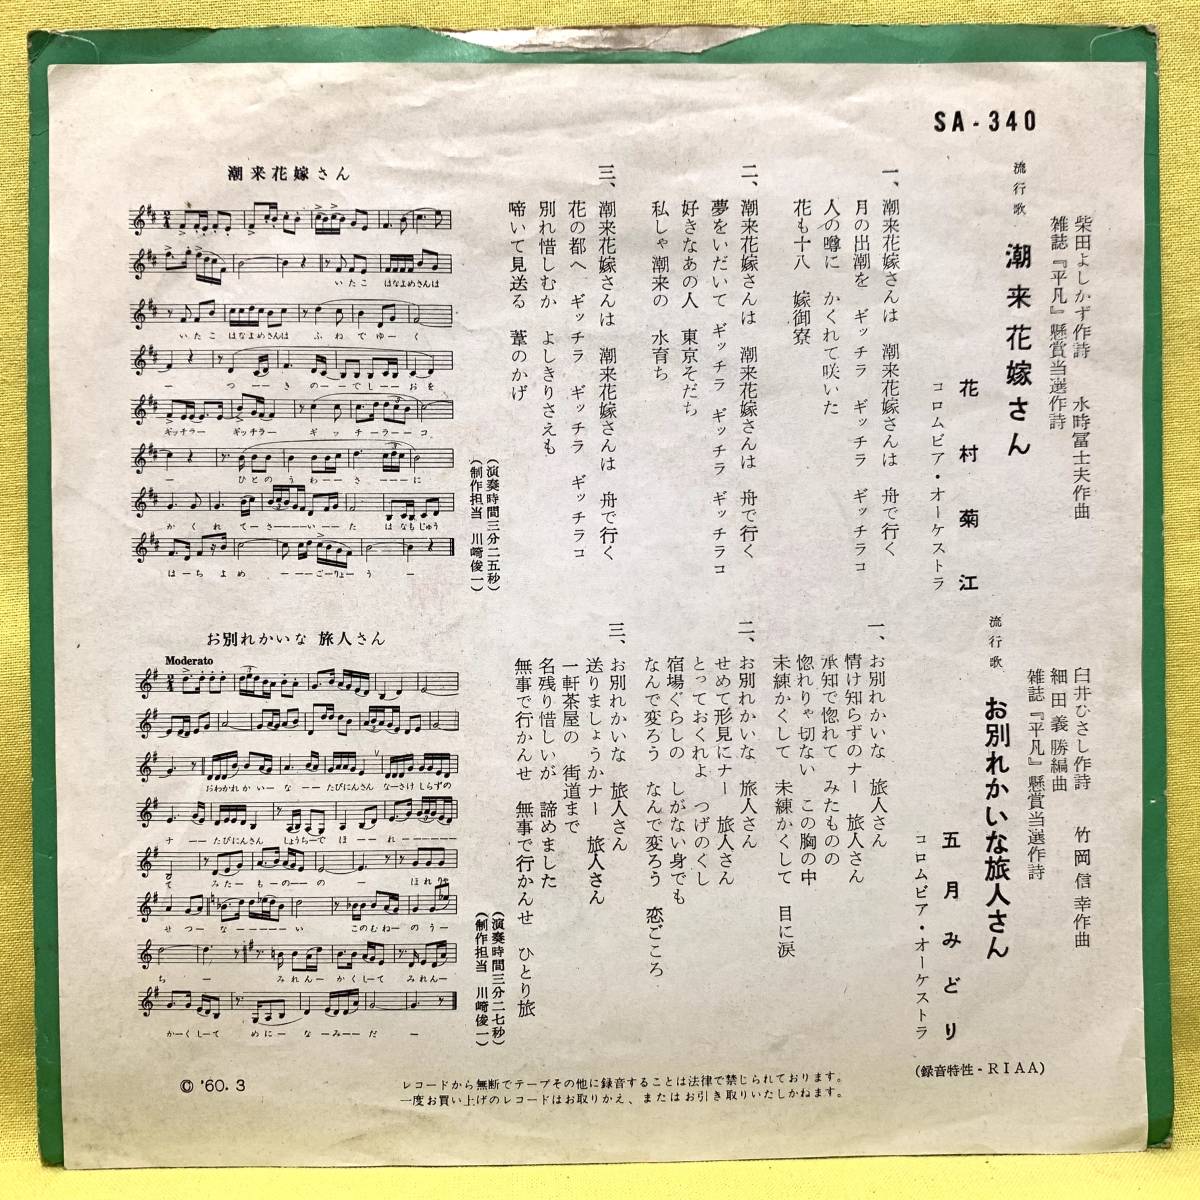 SA-340
柴田よしかず作詩　水時冨士夫作曲
雑誌『平凡』懸賞当選作詩
流行歌　潮来花嫁さん
花村菊江
コロムビア・オーケストラ
一、潮来花嫁さんは　潮来花嫁さんは　舟で行く
月の出潮を　ギッチラ　ギッチラ　ギッチラコ
人の噂に　かくれて咲いた
花も十八　嫁御寮
二、潮来花嫁さんは　潮来花嫁さんは　舟で行く
夢をいだいて　ギッチラ　ギッチラ　ギッチラコ
好きなあの人　東京そだち
私しゃ潮来の　水育ち
三、潮来花嫁さんは　潮来花嫁さんは　舟で行く
花の都へ　ギッチラ　ギッチラ　ギッチラコ
別れ惜しむか　よしきりさえも
啼いて見送る　葦のかげ
(演奏時間三分二五秒)
(制作担当　川﨑俊一)
潮来花嫁さん
いたこ　はなよめさんは
いたこ　はなよめさんは　ふねでゆーく
ー　つーきのーーでしーおを
ギッチラー　ギッチラー　ギッチーラーーコ
ー　ひとのうわーーさーーに
かくれてーさーーーいーた　はなもじゅう
はーちよめ　ーーーごーりょーう　ー
臼井ひさし作詩　竹岡信幸作曲
細田義勝編曲
雑誌『平凡』懸賞当選作詩
流行歌　お別れかいな旅人さん
五月みどり
コロムビア・オーケストラ
一、お別れかいな　旅人さん
情け知らずのナー　旅人さん
承知で惚れて　みたものの
惚れりゃ切ない　この胸の中
未練かくして　未練かくして　目に涙
二、お別れかいな　旅人さん
せめて形見にナー　旅人さん
とっておくれよ　つげのくし
宿場ぐらしの　しがない身でも
なんで変ろう　なんで変ろう　恋ごころ
三、お別れかいな　旅人さん
送りましょうかナー　旅人さん
一軒茶屋の　街道まで
名残り惜しいが　諦めました
無事で行かんせ　無事で行かんせ　ひとり旅
(演奏時間三分二七秒)
(制作担当　川﨑俊一)
お別れかいな 旅人さん
Moderato
おわかれかいーなーー　たびにんさん　なーさけしらずの
ナー　ーーたびにんさん　しょうちーでほーれーーーー
てみたーものーのー　ほれりゃ
せつなーーーーーい　このむねーのうー
ちー　みれんーかくしーて　みれんー
かーくしーて　めになーみーーだー
(録音特性-RIAA)
© '60.3
レコードから無断でテープその他に録音することは法律で禁じられております。
一度お買い上げのレコードはお取りかえ、またはお引き取りいたしかねます。